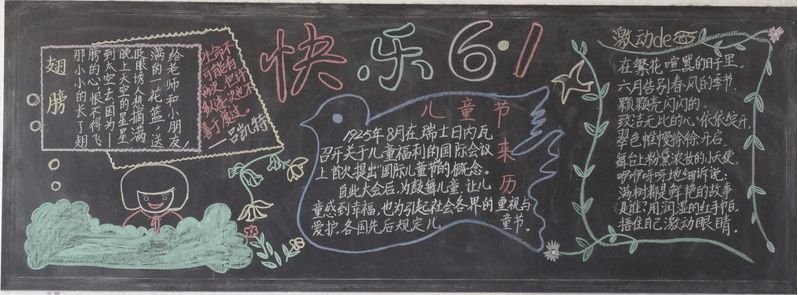 快乐6·1
翅膀
给老师和小朋友
满的一花篮，送
眨眼诱人想摘满
晚上天空的星星
到太空去，因为——
膀的心，恨不得飞
那小小的长了翅
生命不
可能有
两次，但许
多人连一次也不
善于度过。
——吕凯特
儿童节来历
1925年8月在瑞士日内瓦
召开关于儿童福利的国际会议
上首次提出国际儿童节的概念。
自此大会后，为鼓舞儿童，让儿
童感到幸福，也为引起社会各界的重视与
爱护，各国先后规定儿童节。
激动de
在繁花喧嚣的日子里
六月告别春风的季节
颗颗亮闪闪的
致洁无比的心依依绽开
翠色帷幔徐徐开启
舞台上粉黛浓妆的小天使
咿咿呀呀地细听说：
满树都是鲜艳的故事
是谁：用润湿的红手帕
捂住自己激动眼睛。